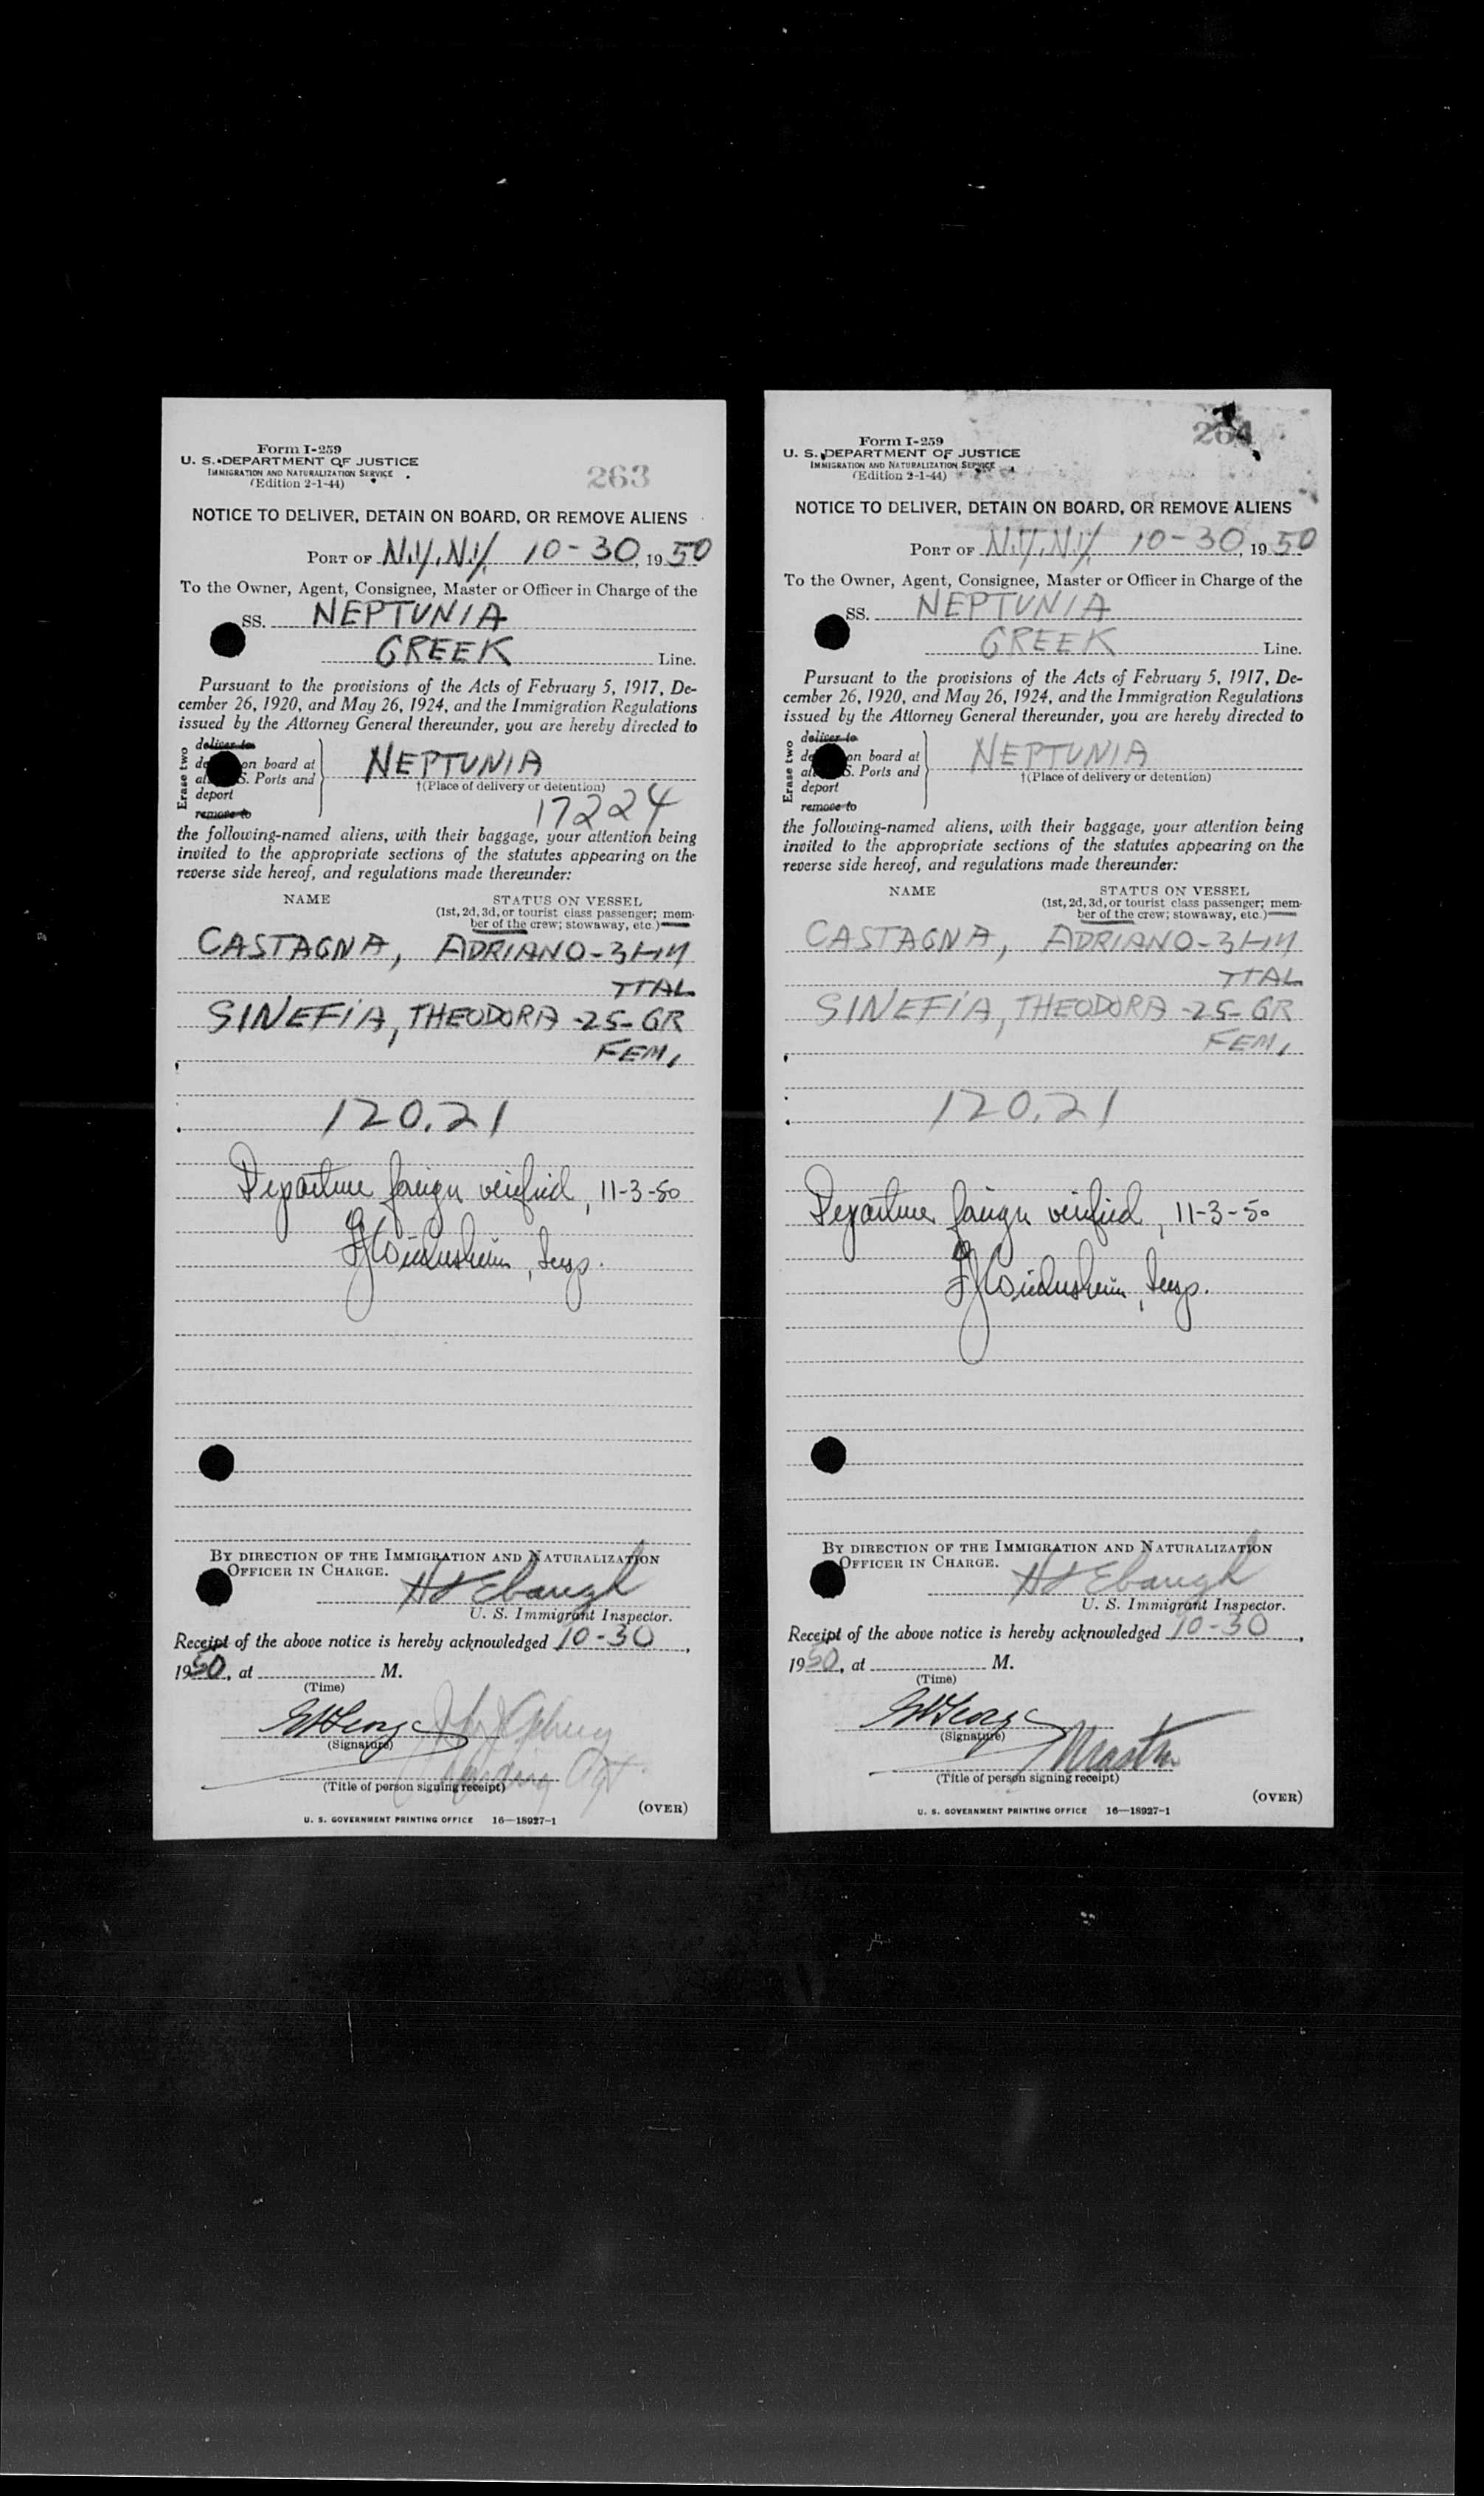 Form I-259
U. S. DEPARTMENT OF JUSTICE
IMMIGRATION AND NATURALIZATION SERVICE
(Edition 2-1-44)
263
NOTICE TO DELIVER, DETAIN ON BOARD, OR REMOVE ALIENS
PORT OF N.Y. N.Y. 10-30, 1950
To the Owner, Agent, Consignee, Master or Officer in Charge of the
SS. NEPTUNIA
GREEK Line.
Pursuant to the provisions of the Acts of February 5, 1917, De-
cember 26, 1920, and May 26, 1924, and the Immigration Regulations
issued by the Attorney General thereunder, you are hereby directed to
Erase two
deliver to
on board at
S. Ports and
deport
remove to
NEPTUNIA
†(Place of delivery or detention)
17224
the following-named aliens, with their baggage, your attention being
invited to the appropriate sections of the statutes appearing on the
reverse side hereof, and regulations made thereunder:
NAME
STATUS ON VESSEL
(1st, 2d, 3d, or tourist class passenger; mem-
ber of the crew; stowaway, etc.)
CASTAGNA, ADRIANO-31-M
ITAL
SINEFIA, THEODORA-25-GR
FEM.
120.21
Departure foreign verified, 11-3-50
Insp.
BY DIRECTION OF THE IMMIGRATION AND NATURALIZATION
OFFICER IN CHARGE.
Ebaugh
U. S. Immigrant Inspector.
Receipt of the above notice is hereby acknowledged 10-30,
1950, at M.
(Time)
(Signature)
(Title of person signing receipt)
(OVER)
U. S. GOVERNMENT PRINTING OFFICE 16—18927-1
Form I-259
U. S. DEPARTMENT OF JUSTICE
IMMIGRATION AND NATURALIZATION SERVICE
(Edition 2-1-44)
264
NOTICE TO DELIVER, DETAIN ON BOARD, OR REMOVE ALIENS
PORT OF N.Y. N.Y. 10-30, 1950
To the Owner, Agent, Consignee, Master or Officer in Charge of the
SS. NEPTUNIA
GREEK Line.
Pursuant to the provisions of the Acts of February 5, 1917, De-
cember 26, 1920, and May 26, 1924, and the Immigration Regulations
issued by the Attorney General thereunder, you are hereby directed to
Erase two
deliver to
on board at
S. Ports and
deport
remove to
NEPTUNIA
†(Place of delivery or detention)
the following-named aliens, with their baggage, your attention being
invited to the appropriate sections of the statutes appearing on the
reverse side hereof, and regulations made thereunder:
NAME
STATUS ON VESSEL
(1st, 2d, 3d, or tourist class passenger; mem-
ber of the crew; stowaway, etc.)
CASTAGNA, ADRIANO-31-M
ITAL
SINEFIA, THEODORA-25-GR
FEM.
120.21
Departure foreign verified, 11-3-50
Insp.
BY DIRECTION OF THE IMMIGRATION AND NATURALIZATION
OFFICER IN CHARGE.
Ebaugh
U. S. Immigrant Inspector.
Receipt of the above notice is hereby acknowledged 10-30,
1950, at M.
(Time)
(Signature)
Master
(Title of person signing receipt)
(OVER)
U. S. GOVERNMENT PRINTING OFFICE 16—18927-1